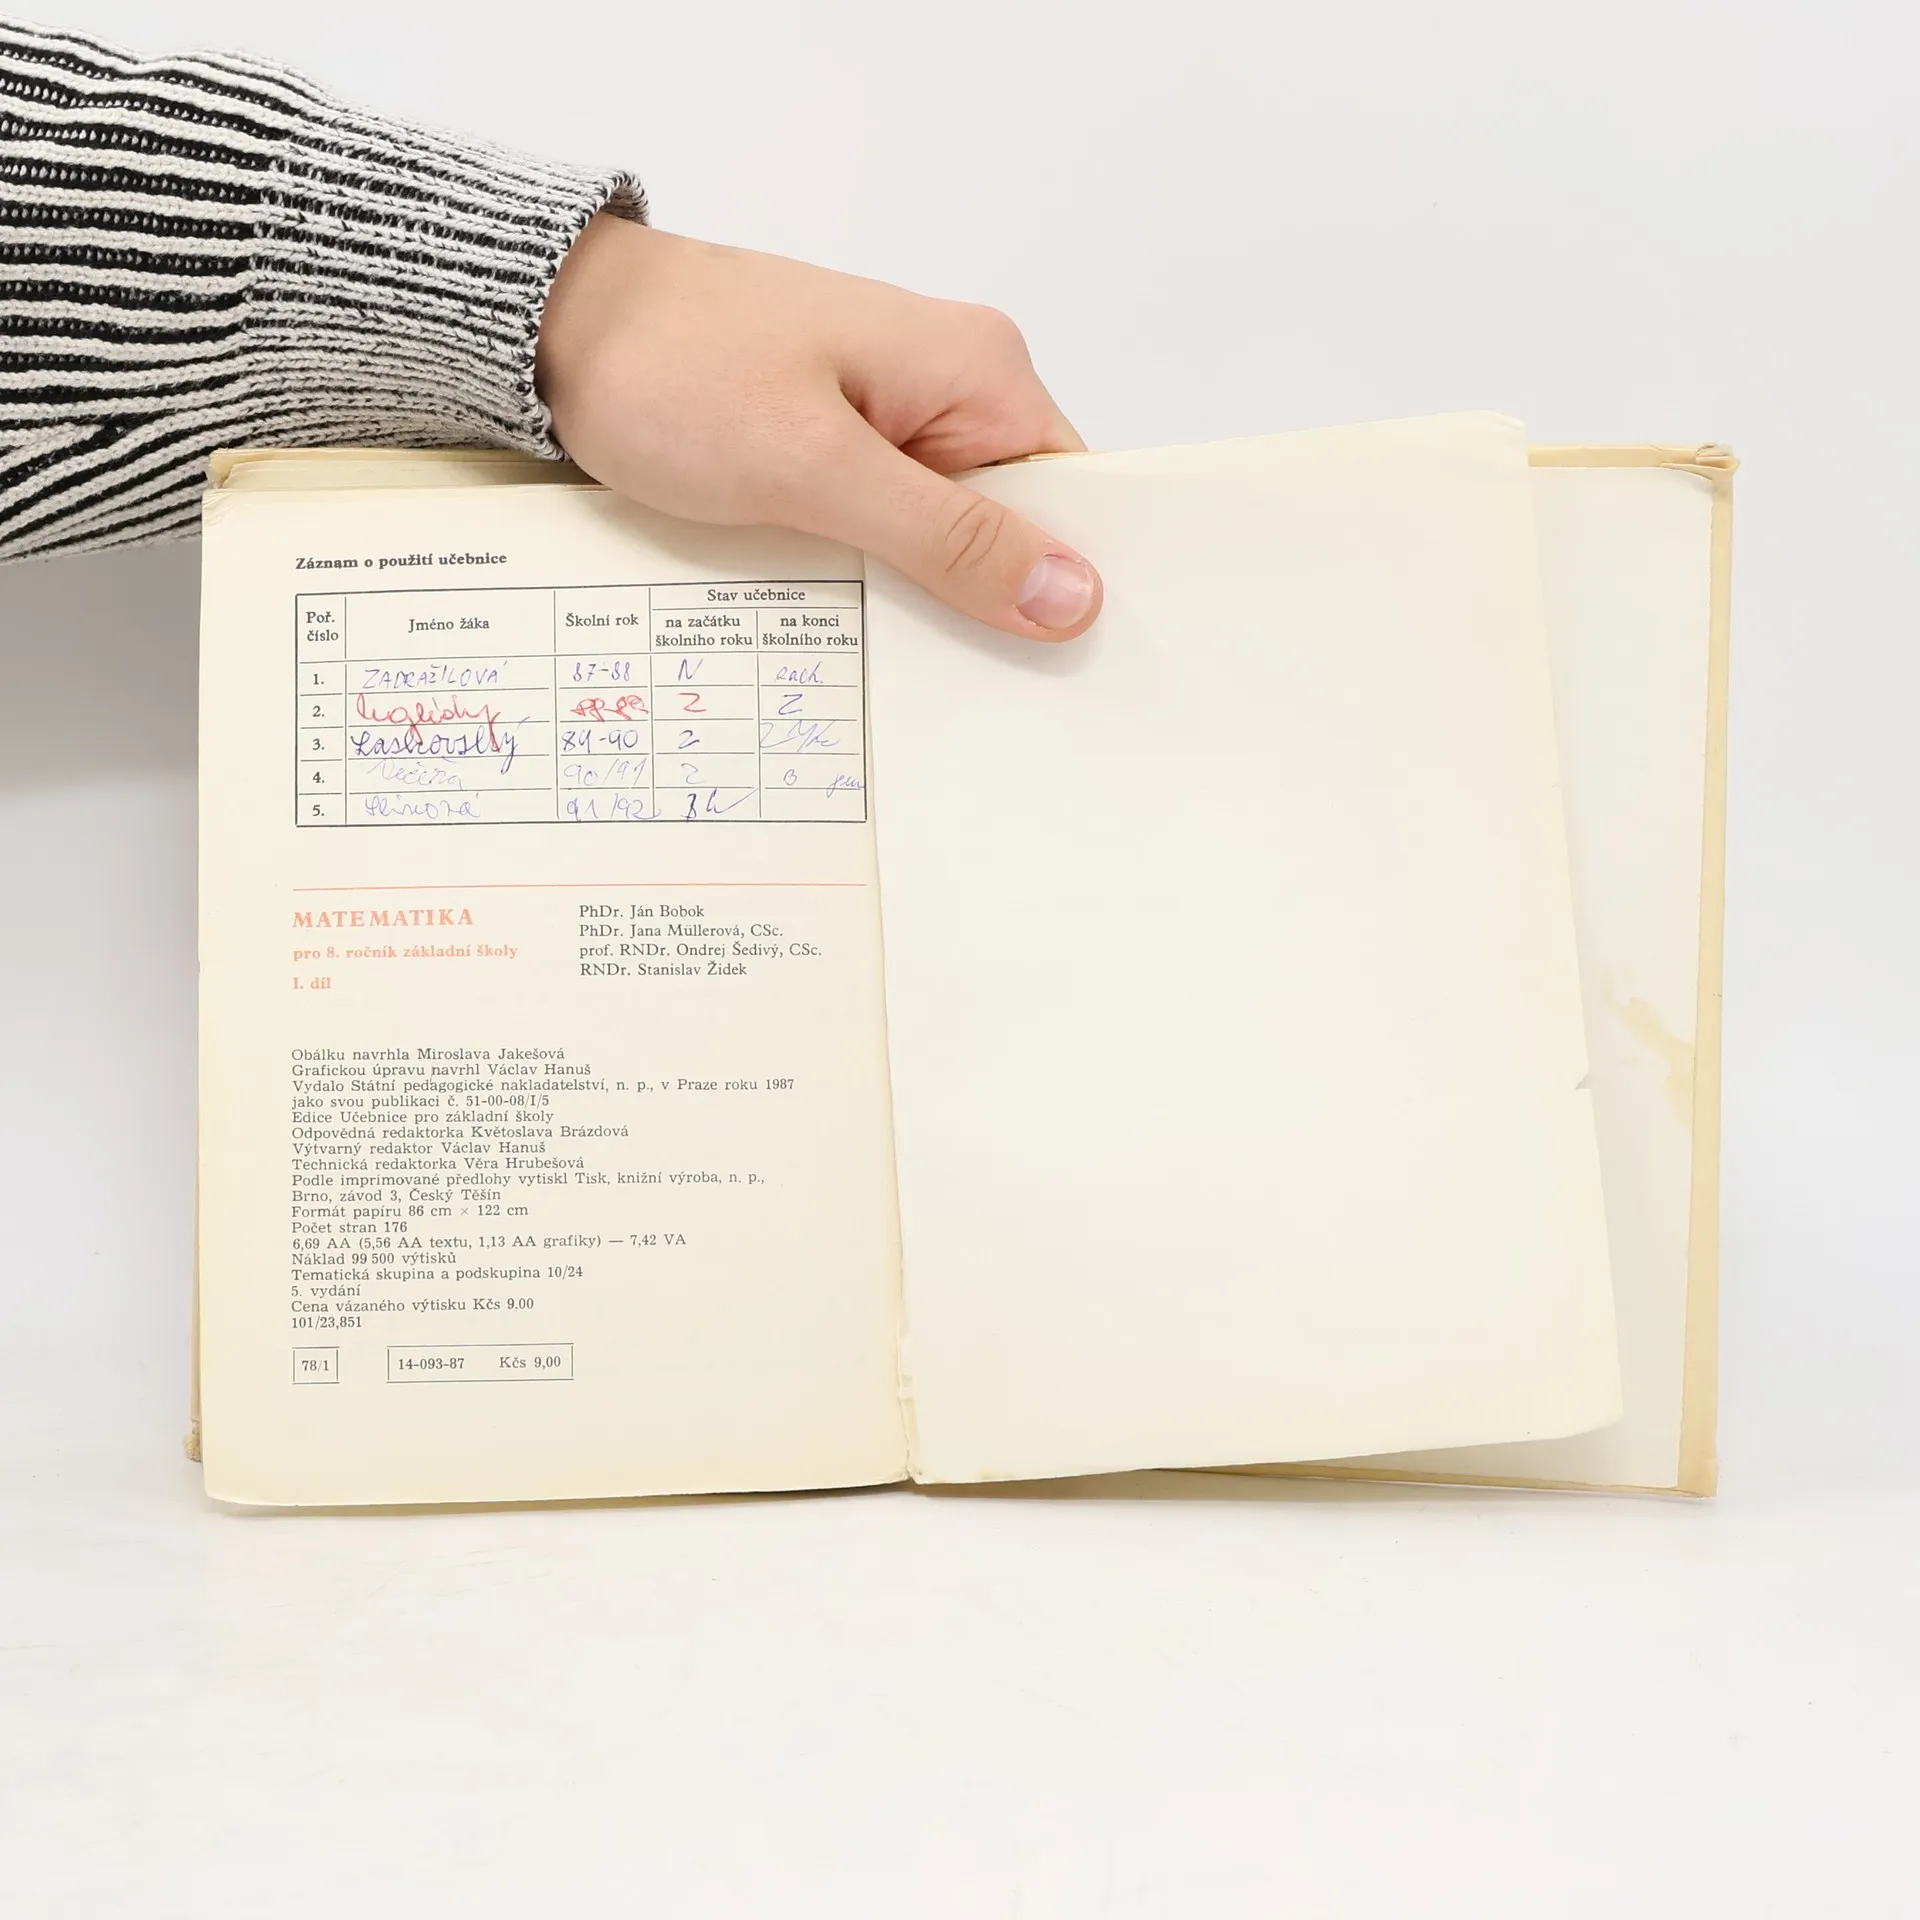 Záznam o použití učebnice
Poř. číslo Jméno žáka Školní rok Stav učebnice
na začátku školního roku na konci školního roku
1. ZADRAŽILOVÁ 87-88 N zach.
2. 88-89 2 2
3. Laskovský 89-90 2 2
4. 90/91 2 3
5. 91/92
MATEMATIKA
pro 8. ročník základní školy
I. díl
PhDr. Ján Bobok
PhDr. Jana Müllerová, CSc.
prof. RNDr. Ondrej Šedivý, CSc.
RNDr. Stanislav Židek
Obálku navrhla Miroslava Jakešová
Grafickou úpravu navrhl Václav Hanuš
Vydalo Státní pedagogické nakladatelství, n. p., v Praze roku 1987
jako svou publikaci č. 51-00-08/I/5
Edice Učebnice pro základní školy
Odpovědná redaktorka Květoslava Brázdová
Výtvarný redaktor Václav Hanuš
Technická redaktorka Věra Hrubešová
Podle imprimované předlohy vytiskl Tisk, knižní výroba, n. p.,
Brno, závod 3, Český Těšín
Formát papíru 86 cm × 122 cm
Počet stran 176
6,69 AA (5,56 AA textu, 1,13 AA grafiky) — 7,42 VA
Náklad 99 500 výtisků
Tematická skupina a podskupina 10/24
5. vydání
Cena vázaného výtisku Kčs 9.00
101/23,851
78/1 14-093-87 Kčs 9,00